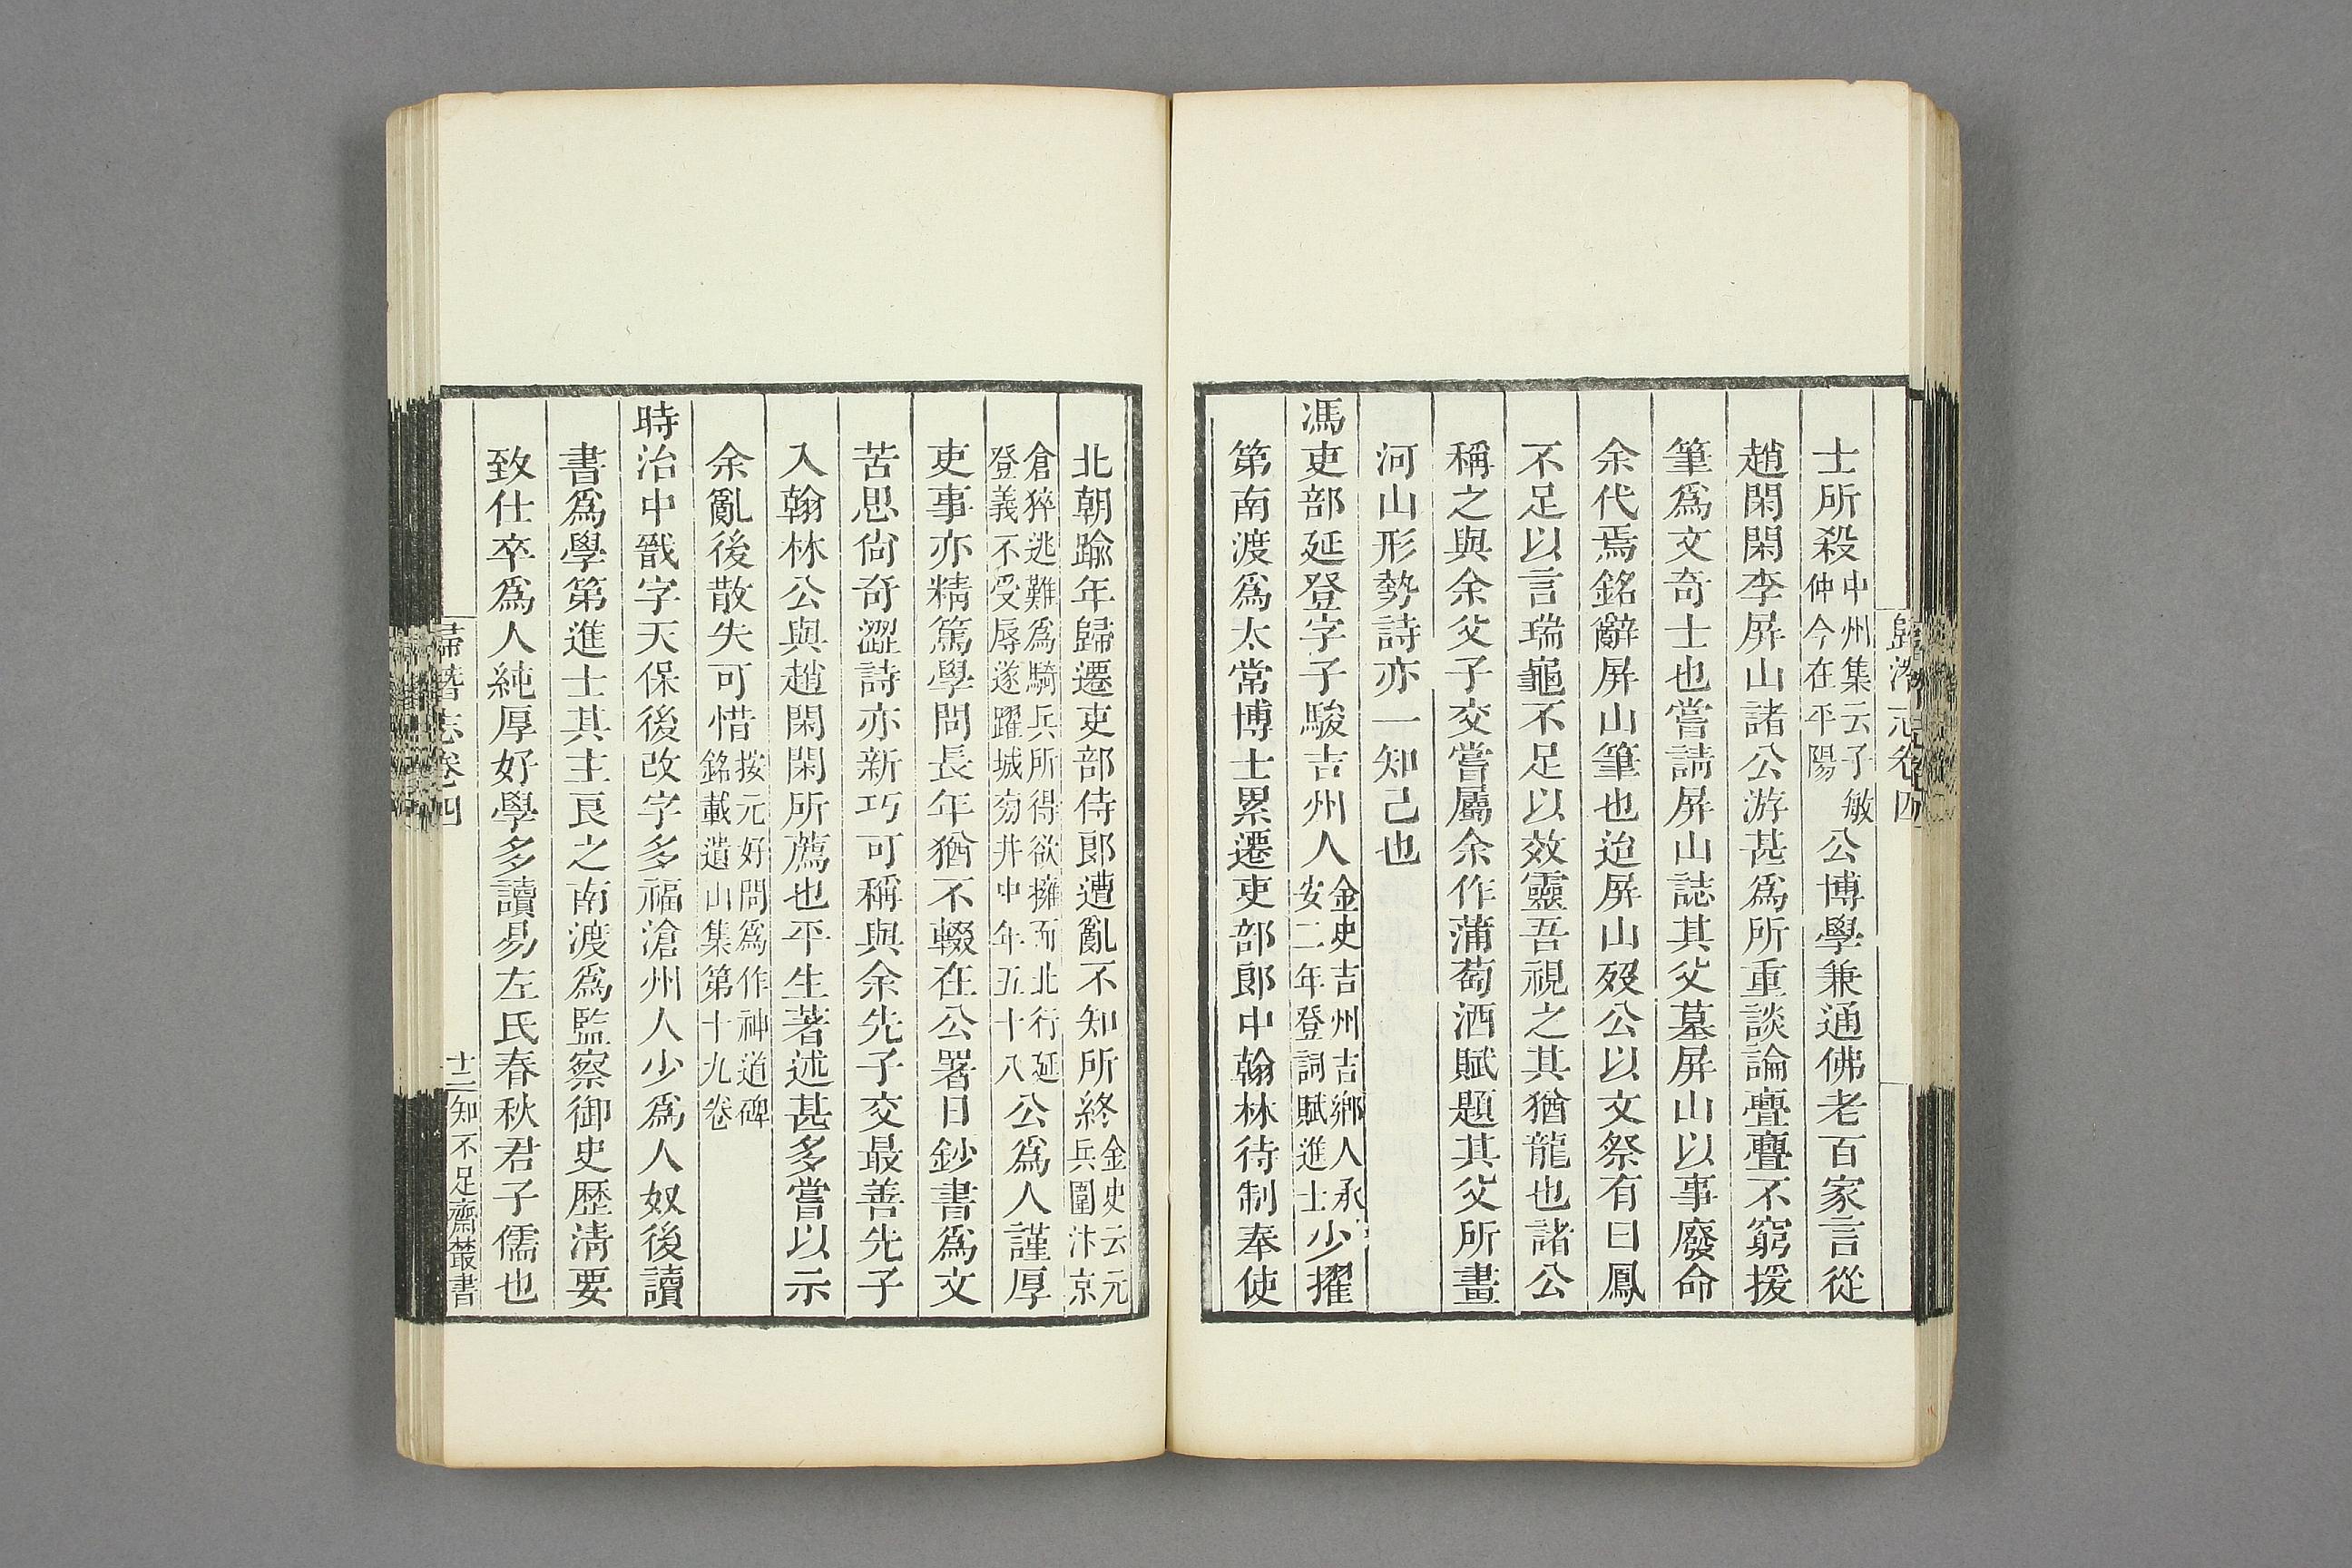 歸潛志卷四
士所殺中州集云子敏仲今在平陽公博學兼通佛老百家言從
趙閑閑李屏山諸公游甚爲所重談論亹亹不窮援
筆爲文奇士也嘗請屏山誌其父墓屏山以事廢命
余代焉銘辭屏山筆也迨屏山歿公以文祭有曰鳳
不足以言瑞龜不足以效靈吾視之其猶龍也諸公
稱之與余父子交嘗屬余作蒲萄酒賦題其父所畫
河山形勢詩亦一知己也
馮吏部延登字子駿吉州人金史吉州吉鄉人承安二年登詞賦進士少擢
第南渡爲太常博士累遷吏部郎中翰林待制奉使
北朝踰年歸遷吏部侍郎遭亂不知所終金史云元兵圍汴京
倉猝逃難爲騎兵所得欲擁而北行延登義不受辱遂躍城旁井中年五十八公爲人謹厚
吏事亦精篤學問長年猶不輟在公署日鈔書爲文
苦思尙奇澀詩亦新巧可稱與余先子交最善先子
入翰林公與趙閑閑所薦也平生著述甚多嘗以示
余亂後散失可惜按元好問爲作神道碑銘載遺山集第十九卷
時治中戩字天保後改字多福滄州人少爲人奴後讀
書爲學第進士其主良之南渡爲監察御史歷淸要
致仕卒爲人純厚好學多讀易左氏春秋君子儒也
歸潛志卷四
十二
知不足齋叢書